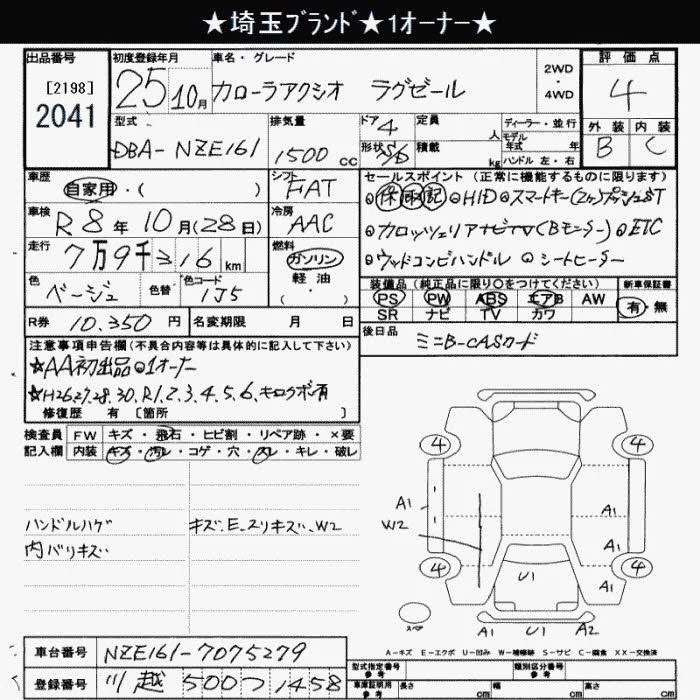 ★埼玉ﾌﾞﾗﾝﾄﾞ★1オーナー★
出品番号 初度登録年月 車名・グレード 2WD・4WD 評価点
[2198]
2041
25 10月 カローラアクシオ ラグゼール 4
型式 排気量 ドア 4 定員 人 ディーラー・並行 外装 内装
DBA-NZE161 1500 cc 形状 S/D 積載 kg モデル年式 年式 ハンドル 左・右 B C
車歴 自家用・( ) シフト FAT セールスポイント (正常に機能するものに限ります)
車検 R8年10月(28日) 冷房 AAC ◎保取記 ◎HID ◎スマートキー(2ヶ)プッシュST
走行 7万9千216km 燃料 ガソリン 軽油 (・) ◎カロッツェリアナビTV(Bモニター) ◎ETC
◎ウッドコンビハンドル ◎シートヒーター
色 ベージュ 色替 色コード 1J5 装備品 (純正品に限り○をつけてください) 新車保証書
PS PW ABS エアB AW 有・無
SR ナビ TV カワ
R券 10.350円 名変期限 月 日 後日品 ミニB-CASカード
注意事項申告欄 (不具合内容等は具体的に記入して下さい)
★AA初出品◎1オーナー
★H26.27.28.30.R1.2.3.4.5.6.キロクボ有
修復歴 有 [箇所 ]
検査員 FW キズ・飛石・ヒビ割・リペア跡・×要
記入欄 内装 キズ・汚レ・コゲ・穴・スレ・キレ・破レ
ハンドルハゲ キズ.E.スリキズ.W2
内バリキズ
4 4
A1 A1
W2 A1
4 4
U1 A1
スペア A1 U1 A2
A-キズ E-エクボ U-凹み W-補修跡 S-サビ C-腐食 XX-交換済
車台番号 NZE161-7075279 型式指定番号 参考 類別区分番号 参考
登録番号 川越 500 つ 1458 車庫証明用 参考 長さ cm 幅 cm 高さ cm